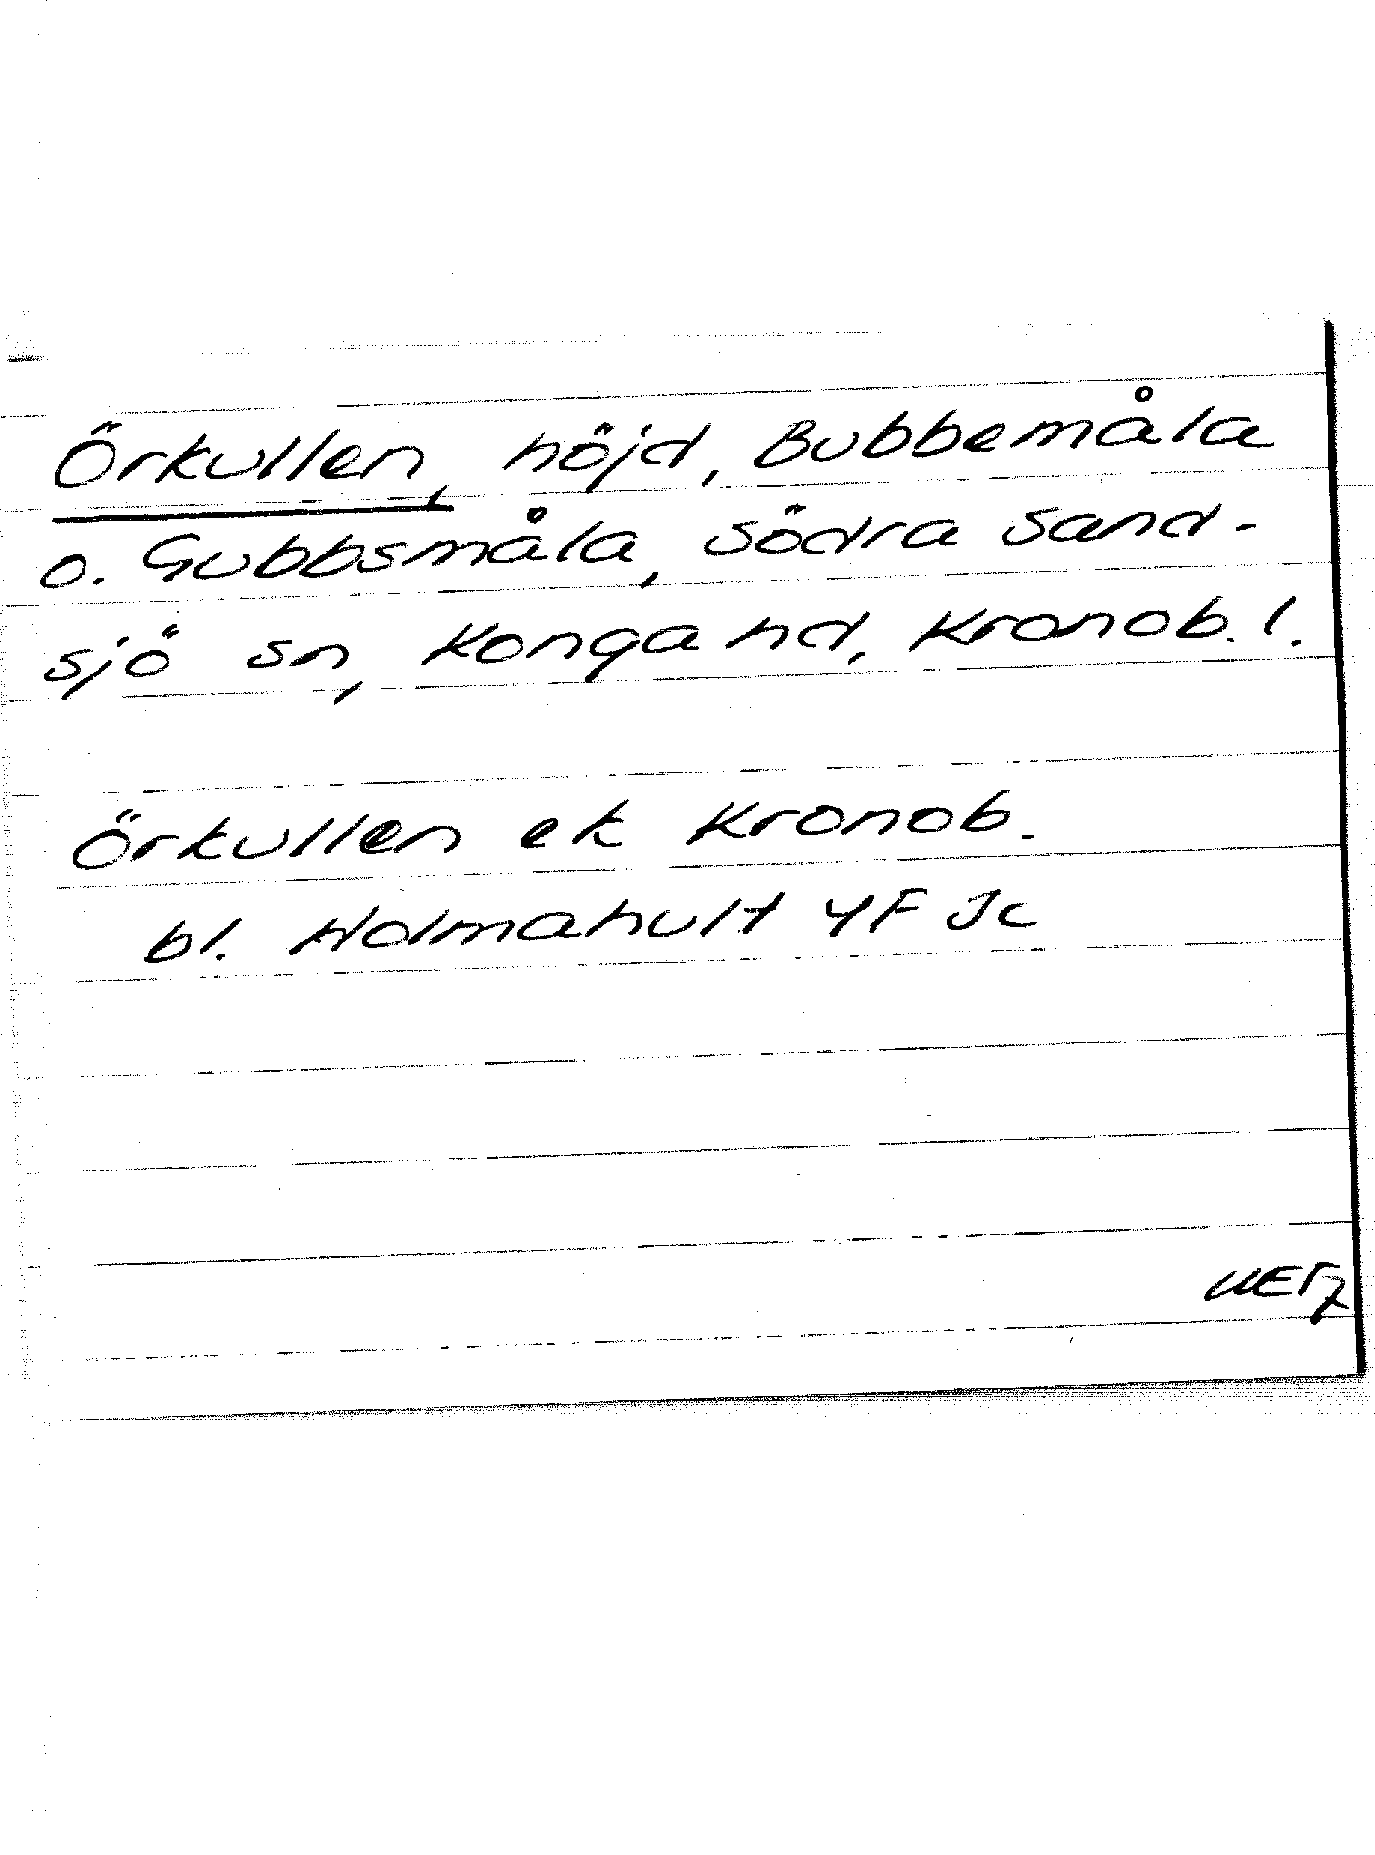 Örkullen, höjd, Bubbemåla
o. Gubbsmåla, Södra Sand-
sjö sn, Konga hd, Kronob. l.
Örkullen ek Kronob.
bl. Holmahult 4F Jc